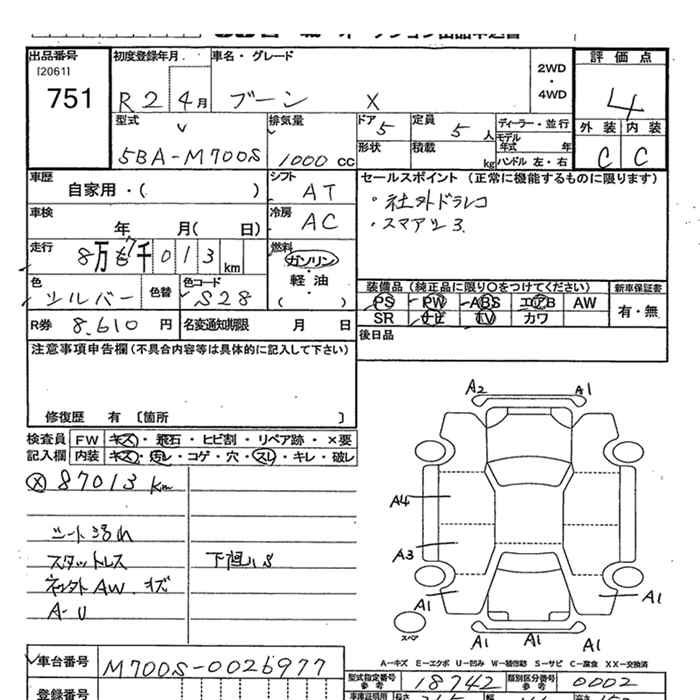 出品番号 初度登録年月 車名・グレード 2WD ・ 4WD 評価点
[2061]
751 R2 4月 ブーン X 4
型式 排気量 ドア 定員 ディーラー・並行 外装 内装
5BA-M700S 1000 CC 5 5人 モデル年式 年 C C
形状 積載 kg ハンドル 左・右
車歴 シフト セールスポイント (正常に機能するものに限ります)
自家用・( ) AT ・社外ドラレコ
車検 冷房 ・スマアシ3
年 月( 日) AC
走行 燃料
8万 7千013 km ガソリン ・ 軽油 ・ ( )
色 色替 色コード 装備品 (純正品に限り○をつけてください) 新車保証書
シルバー S28 PS PW ABS エアB AW 有・無
R券 8.610 円 名変通知期限 月 日 SR ナビ TV カワ
後日品
注意事項申告欄(不具合内容等は具体的に記入して下さい)
修復歴 有 〔箇所 〕
検査員 FW キズ・飛石・ヒビ割・リペア跡・×要
記入欄 内装 キズ・汚れ・コゲ・穴・スレ・キレ・破レ
Ⓧ 87013 Km
シート汚れ
スタットレス 下廻りS
AW キズ
A-U
A2 A1
A4
A3
A1 A1
A1 A1 A1
スペア
A-キズ E-エクボ U-凹み W-補修跡 S-サビ C-腐食 XX-交換済
車台番号 M700S-0026977
型式指定番号 参考 18742 類別区分番号 参考 0002
登録番号